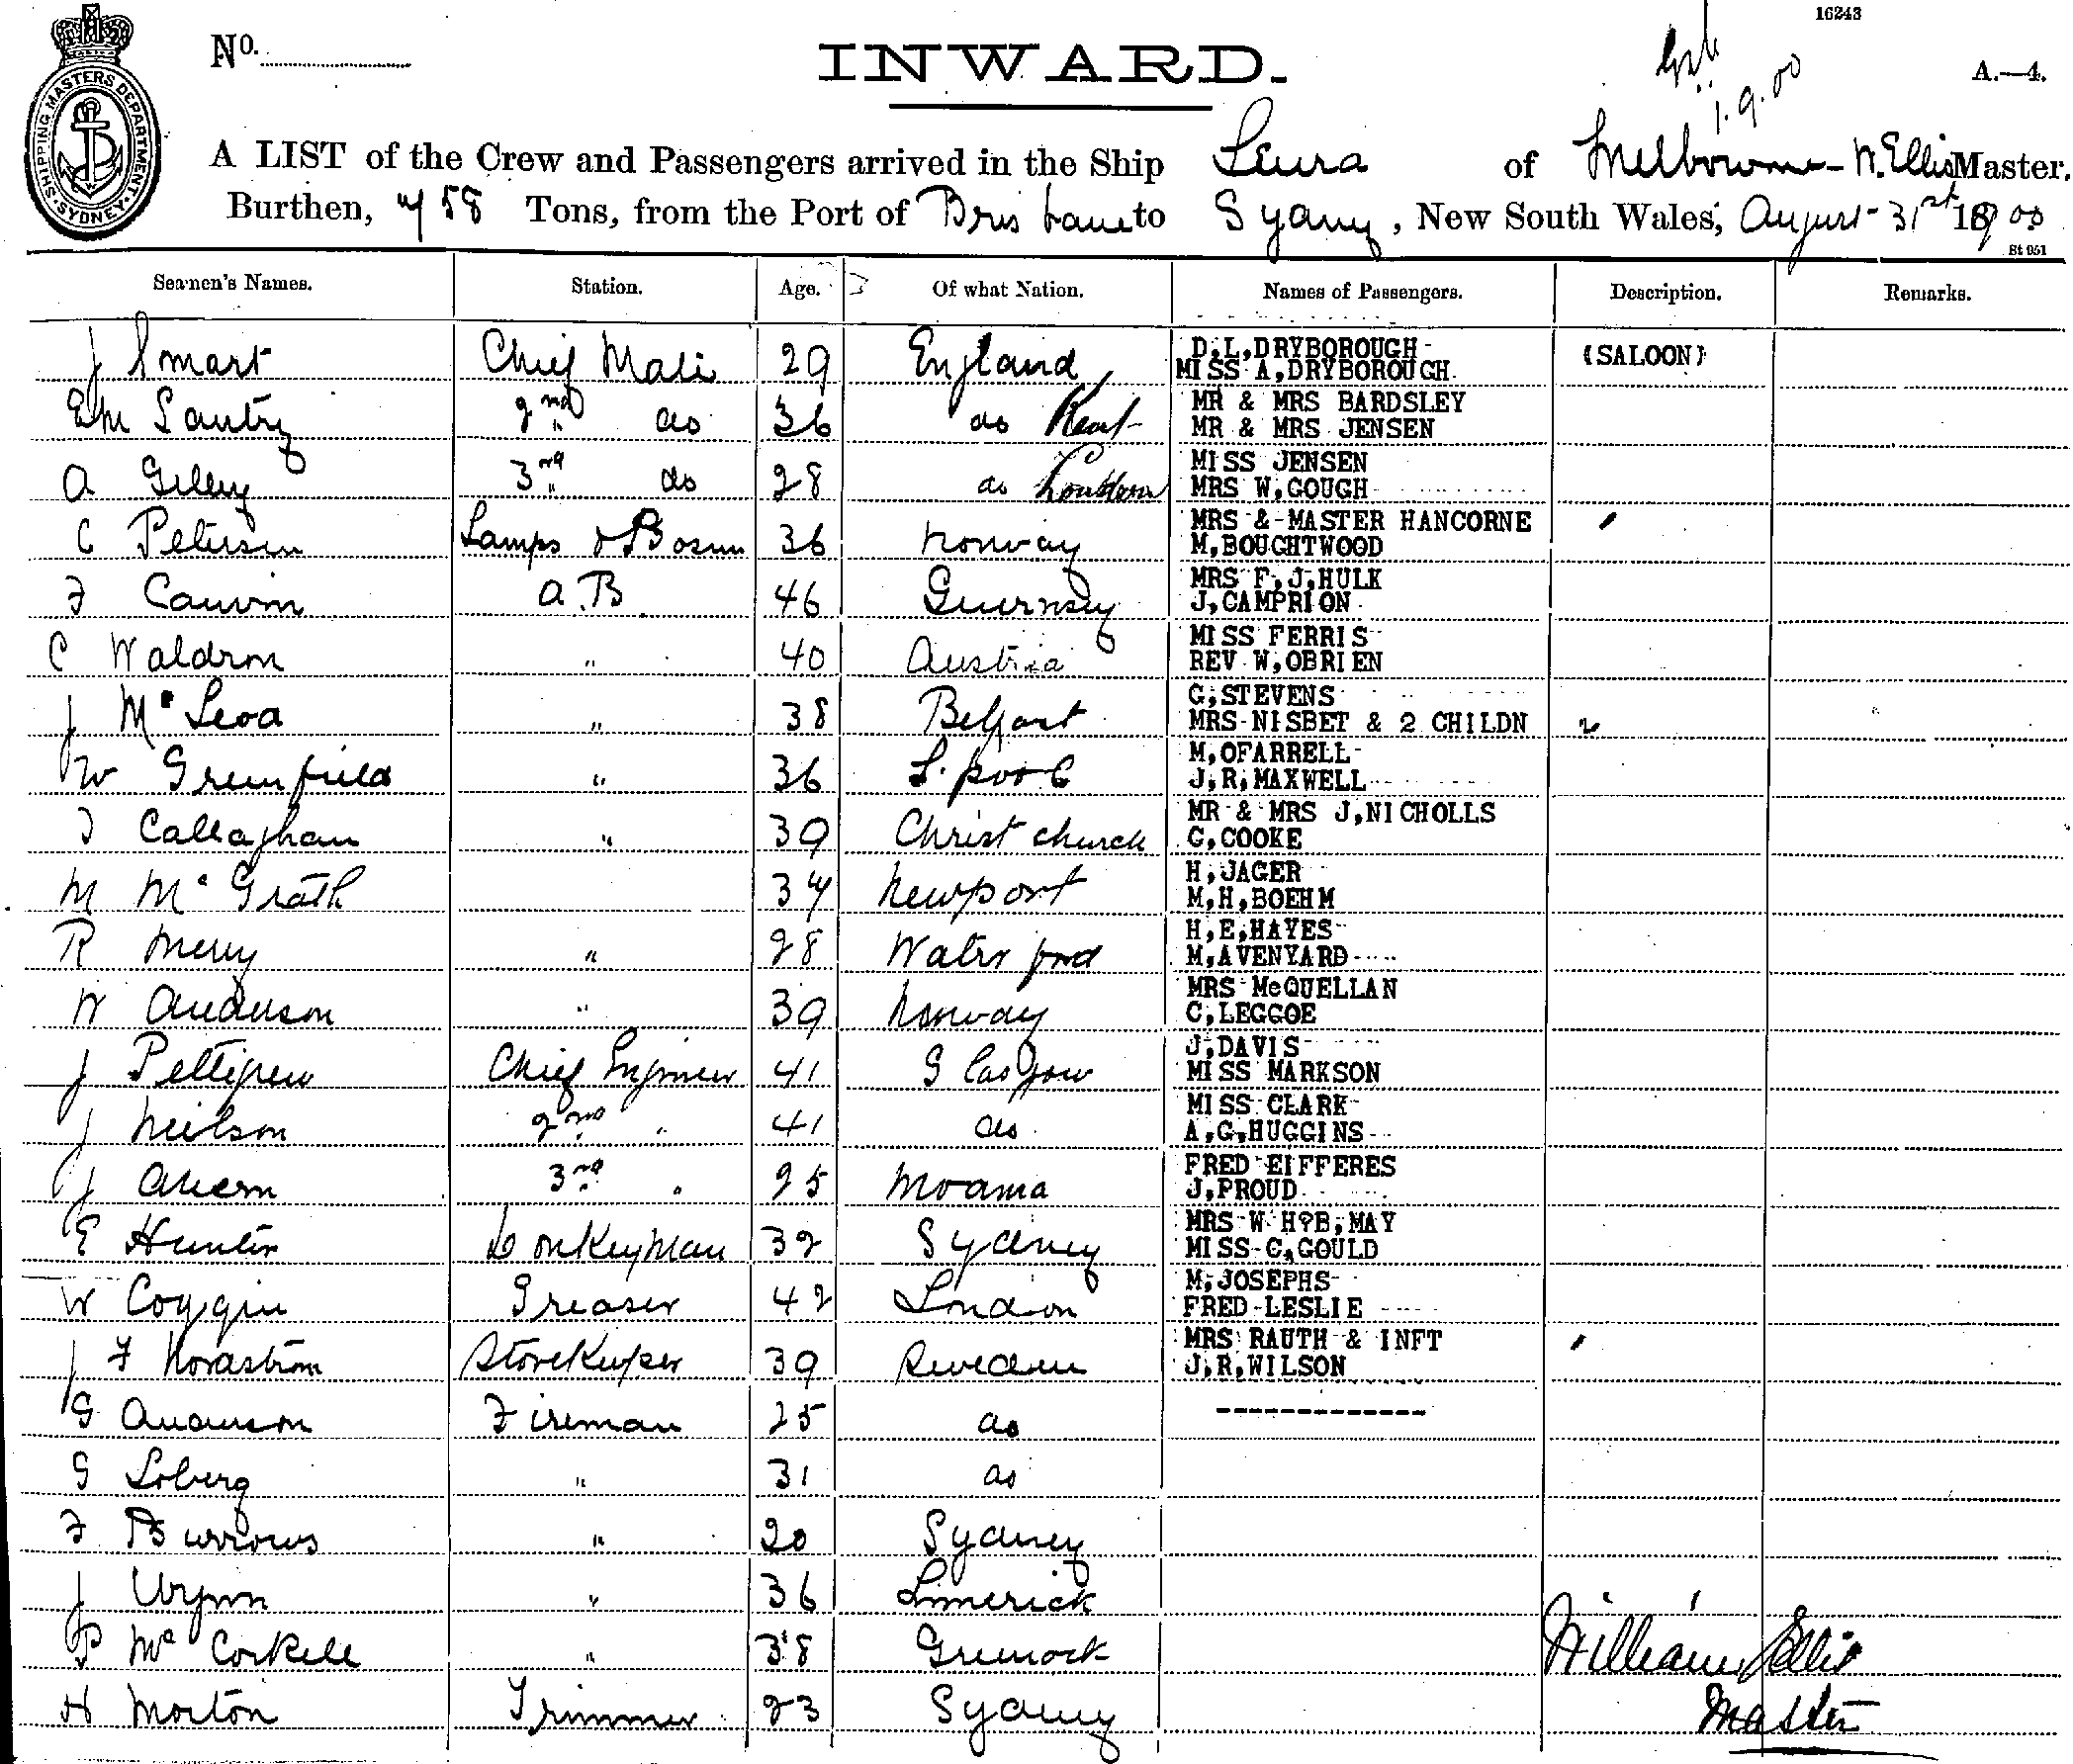 16243
No.
INWARD.
A.—4.
1.9.00
SHIPPING MASTERS DEPARTMENT. SYDNEY.
A LIST of the Crew and Passengers arrived in the Ship Leura of Melbourne - W. Ellis Master,
Burthen, Tons, from the Port of Brisbane to Sydney, New South Wales, August 31st 1900
St 951
Seamen's Names. Station. Age. Of what Nation. Names of Passengers. Description. Remarks.
J Smart Chief Mate 29 England D,L,DRYBOROUGH (SALOON)
MISS A,DRYBOROUGH
EM Santry 2nd do 36 do Kent MR & MRS BARDSLEY
MR & MRS JENSEN
A 3rd do 28 do London MISS JENSEN
MRS W,GOUGH
C Petersen Lamps & Bosun 36 Norway MRS & MASTER HANCORNE
M,BOUGHTWOOD
F Cauvin A.B 46 Guernsey MRS F,J,HULK
J,CAMPRION
C Waldron " 40 Austria MISS FERRIS
REV W,OBRIEN
J McLeod " 38 Belfast G,STEVENS
MRS NISBET & 2 CHILDN 2
W Greenfield " 36 L.pool M,OFARRELL
J,R,MAXWELL
J Callaghan " 39 Christchurch MR & MRS J,NICHOLLS
G,COOKE
M McGrath 34 Newport H,JAGER
M,H,BOEHM
R Merry " 28 Waterford H,E,HAYES
M,AVENYARD
W Anderson " 39 Norway MRS McQUELLAN
C,LEGGOE
J Pettigrew Chief Engineer 41 Glasgow J,DAVIS
MISS MARKSON
J Neilson 2nd " 41 do MISS CLARK
A,G,HUGGINS
J Ahern 3rd " 25 Moama FRED EIFFERES
J,PROUD
E Hunter Donkeyman 32 Sydney MRS W H?B,MAY
MISS C,GOULD
W Coggin Greaser 42 London M,JOSEPHS
FRED LESLIE
J F Nordstrom Storekeeper 39 Sweden MRS RAUTH & INFT
J,R,WILSON
G Anderson Fireman 25 do
G Soberg " 31 do
F Burrows " 20 Sydney
J Wynn " 36 Limerick
P McCorkell " 38 Greenock
H Morton Trimmer 23 Sydney
William Ellis
Master